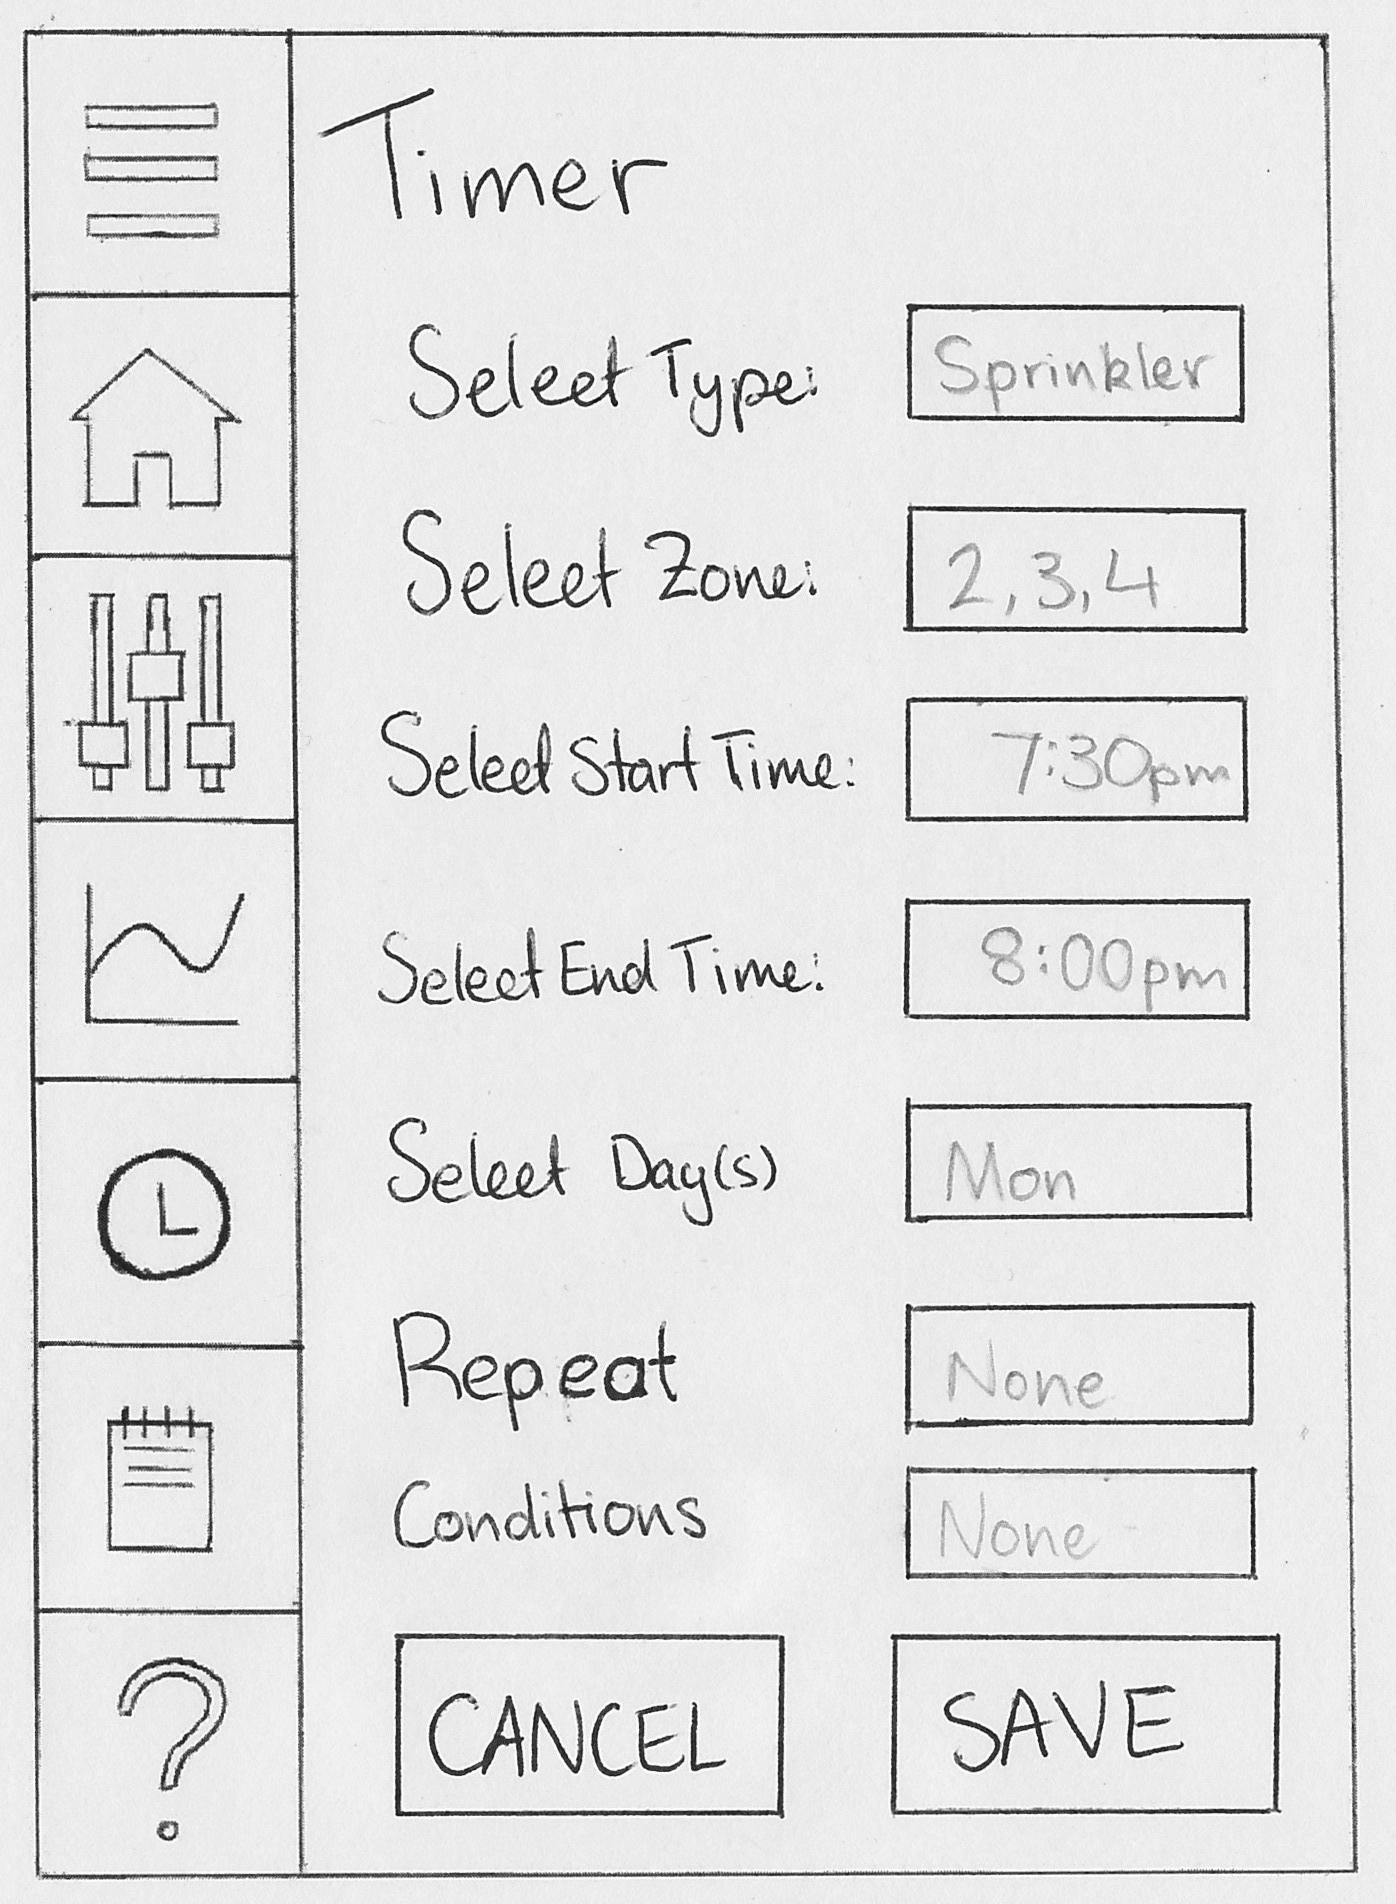 Timer
Select Type: Sprinkler
Select Zone: 2, 3, 4
Select Start Time: 7:30pm
Select End Time: 8:00pm
Select Day(s) Mon
Repeat None
Conditions None
CANCEL SAVE